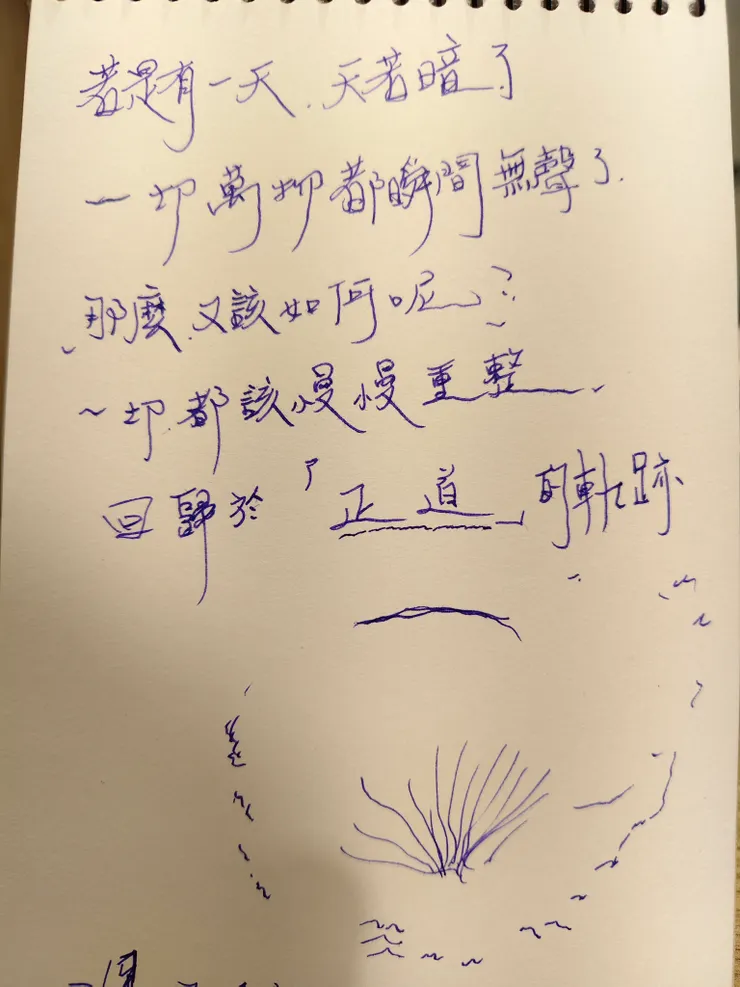 若是有一天、天若暗了
一切萬物都瞬間無聲了.
那麼、又該如何呢?
一切都該慢慢重整
回歸於「正道」的軌跡